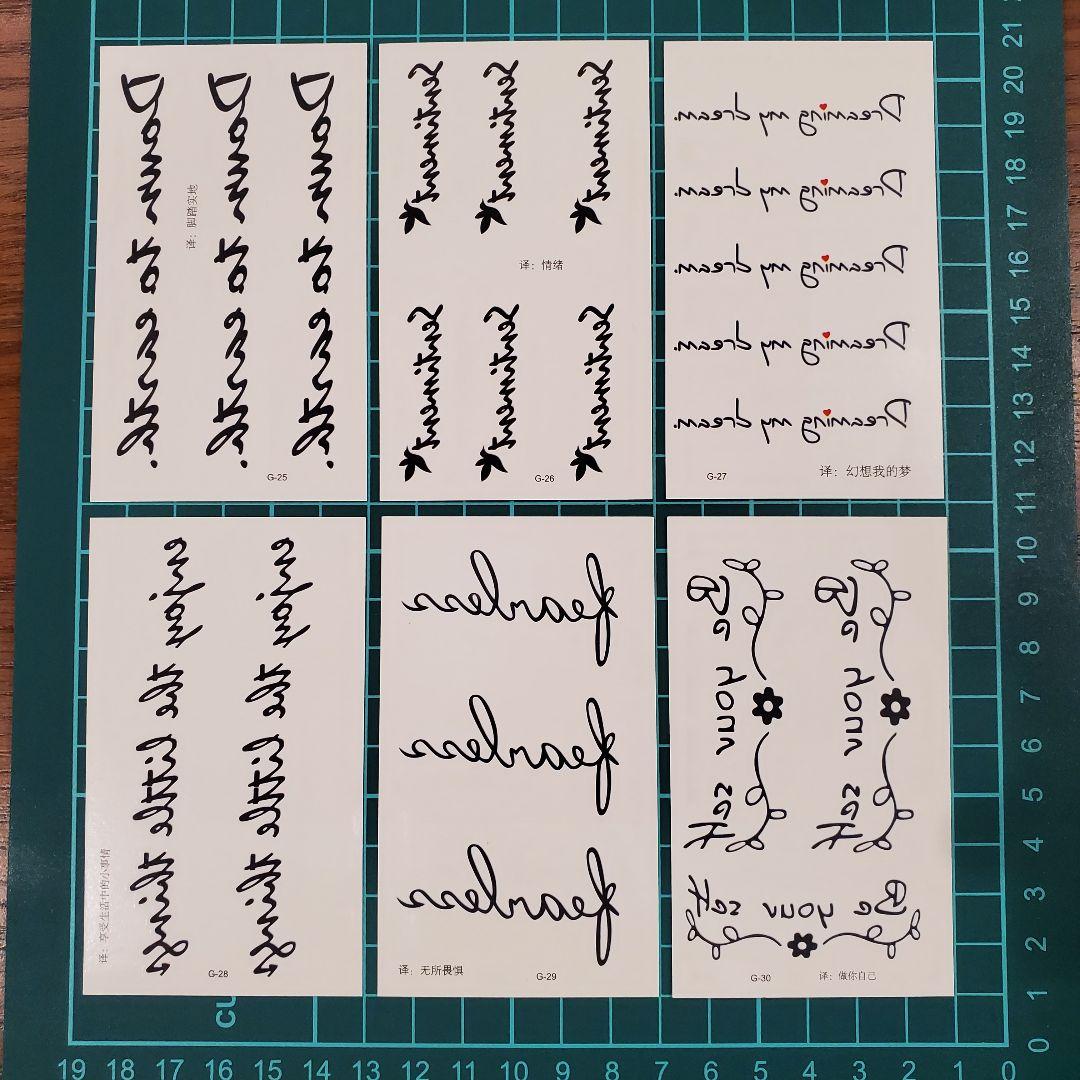 Down to earth.
Down to earth.
Down to earth.
译：脚踏实地
G-25
Sentiment
Sentiment
Sentiment
译：情绪
Sentiment
Sentiment
Sentiment
G-26
Dreaming my dream.
Dreaming my dream.
Dreaming my dream.
Dreaming my dream.
Dreaming my dream.
G-27
译：幻想我的梦
enjoy the little things
enjoy the little things
译：享受生活中的小事情
G-28
fearless
fearless
fearless
译：无所畏惧
G-29
Be your self
Be your self
Be your self
G-30
译：做你自己
21
20
19
18
17
16
15
14
13
12
11
10
9
8
7
6
5
4
3
2
1
0
19 18 17 16 15 14 13 12 11 10 9 8 7 6 5 4 3 2 1 0